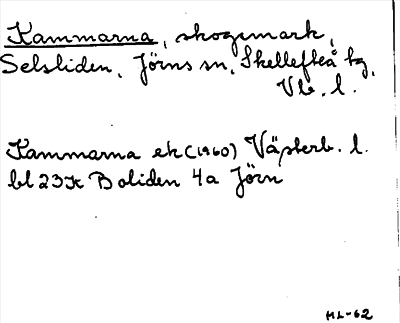 Kammarna, skogsmark,
Selsliden, Jörns sn, Skellefteå tg,
Vb. l.
Kammarna ek (1960) Västerb. l.
bl 23K Boliden 4a Jörn
ML-62